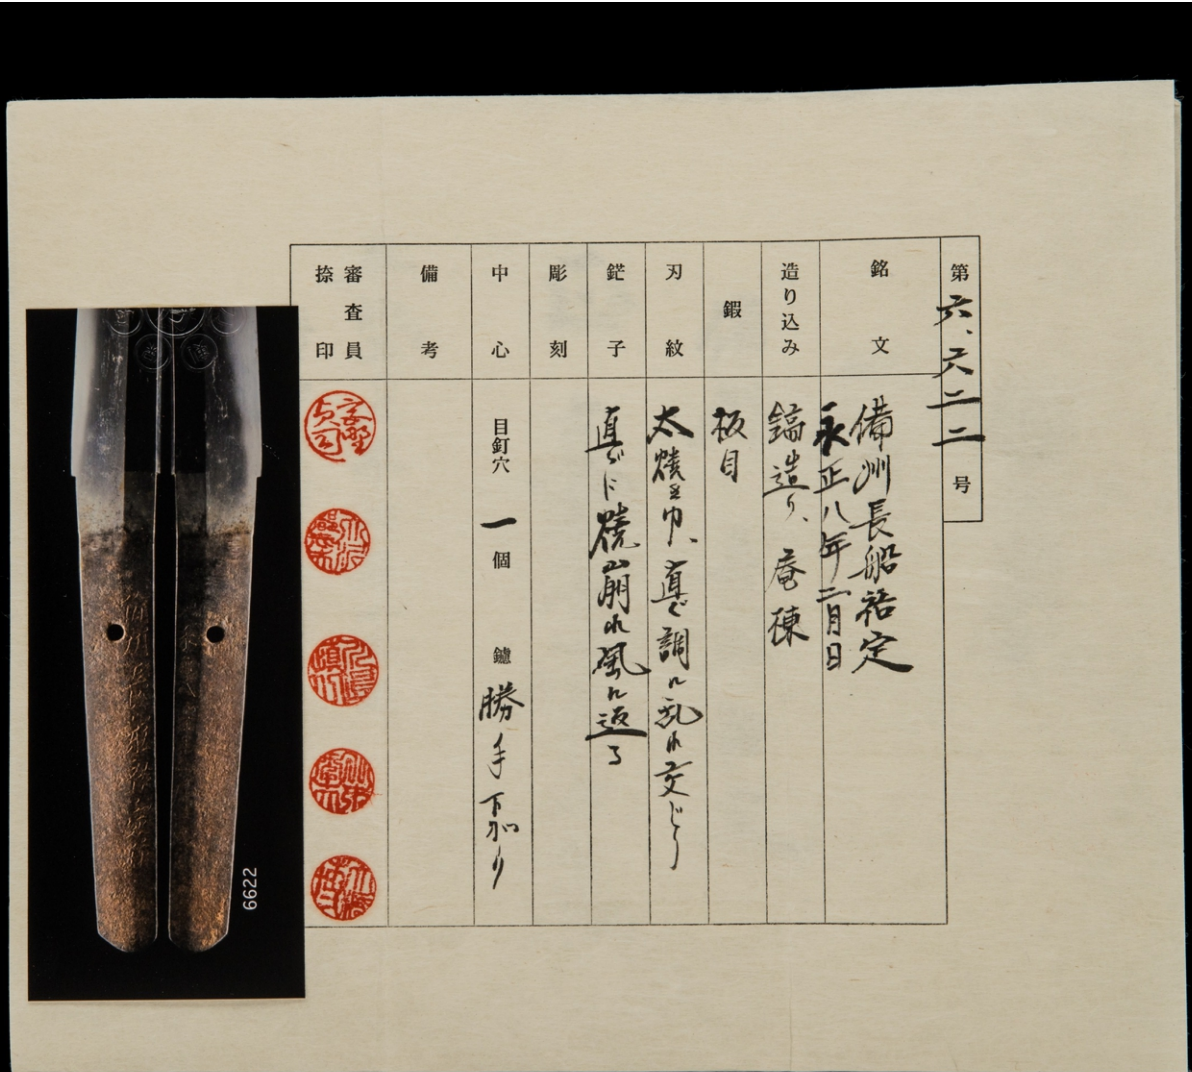 第六、六二二号
銘文
備州長船祐定
永正八年二月日
造り込み
鎬造り、庵棟
鍜
板目
刃紋
太焼き巾、直ぐ調に乱れ交じり
鋩子
直ぐに焼崩れ風に返る
彫刻
中心
目釘穴 一個 鑢 勝手下がり
備考
審査員
捺印
6622